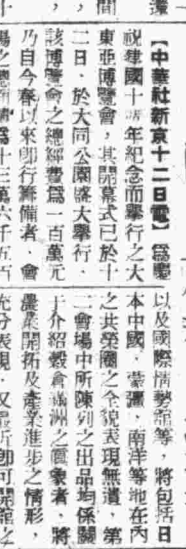 【中華社新京十二日電】爲慶
祝建國十週年紀念而舉行之大
東亞博覽會，其開幕式已於十
二日，於大同公園盛大舉行，
該博覽會之總經費爲一百萬元
乃自今春以來卽行籌備者，會
場之總面積爲十三萬六千五百
以及國際情勢館等，將包括日
本中國，蒙疆，南洋等地在內
之共榮圈之全貌表現無遺，第
二會場中所陳列之出品均係關
于介紹穀倉滿洲之眞象者，將
農業開拓及產業進步之情形，
充分表現，又最近卽可開館之